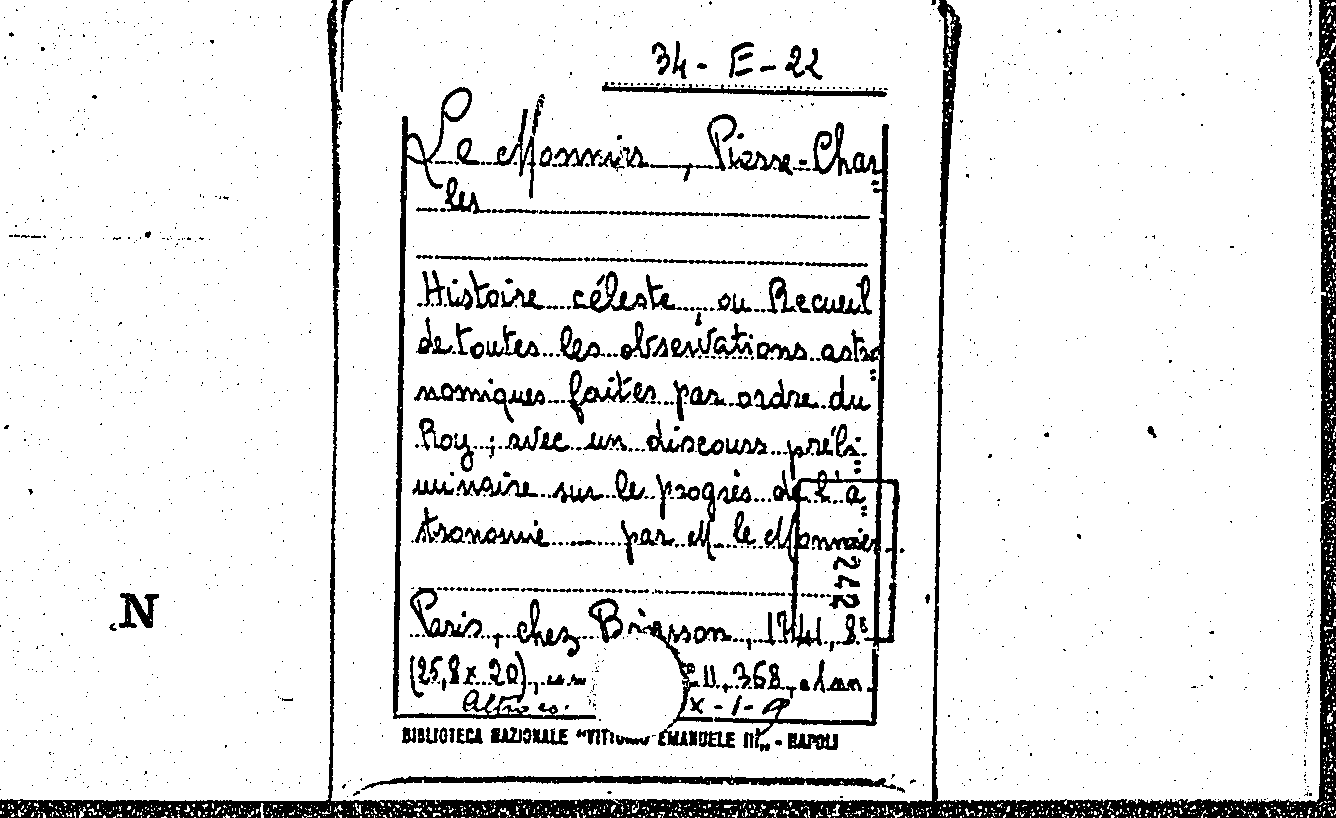 34-E-22
Le Monnier, Pierre-Char=
les
Histoire céleste, ou Recueil
de toutes les observations astro=
nomiques faites par ordre du
Roy; avec un discours préli=
minaire sur le progrès de l'a=
stronomie — par M. le Monnier.
242
Paris, chez Briasson, 1741, 8°
(25,8x20), 368,
Altro es. X-1-9
BIBLIOTECA NAZIONALE "VITTORIO EMANUELE III" - NAPOLI
N